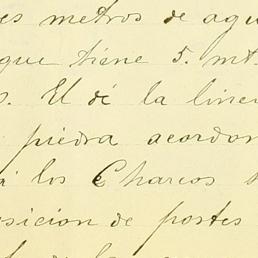 es metros de agu
que tiene 5. mt
s. El dé la line
piedra acordon
á los Charcos
sicion de postes